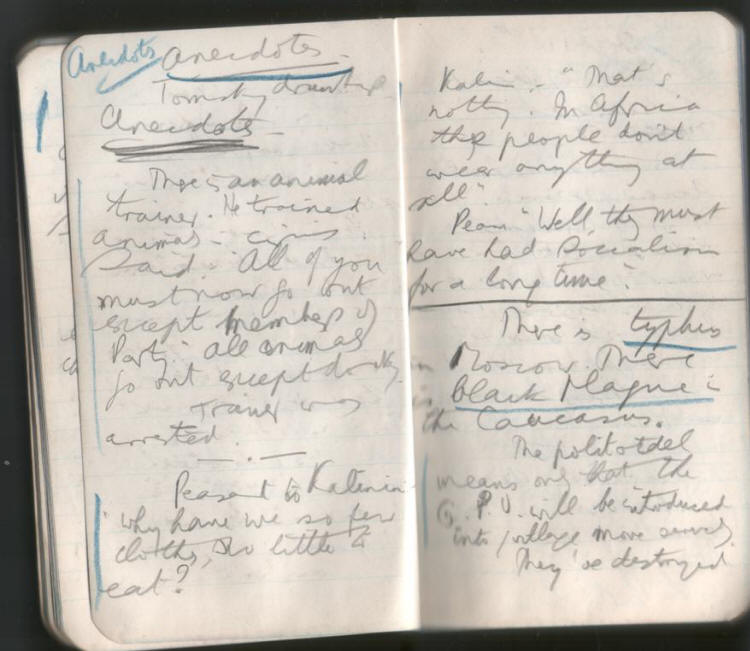 Anecdots
Anecdotes -
Tomsky drunk
Anecdotes -
There is an animal
trainer. He trained
animals - circus.
Said: "All of you
must now go out
except members of
Party." All animals
go out except donkey.
Trainer was
arrested.
Peasant to Kalinin
"Why have we so few
clothes, so little to
eat?
Kalin. - "That's
nothing. In Africa
the people don't
wear anything at
all".
Peas. "Well, they must
have had Socialism
for a long time".
There is typhus
in Moscow. There
is black plague in
the Caucasus.
The politotdel
means only that the
G.P.U. will be introduced
into village more
They've destroyed